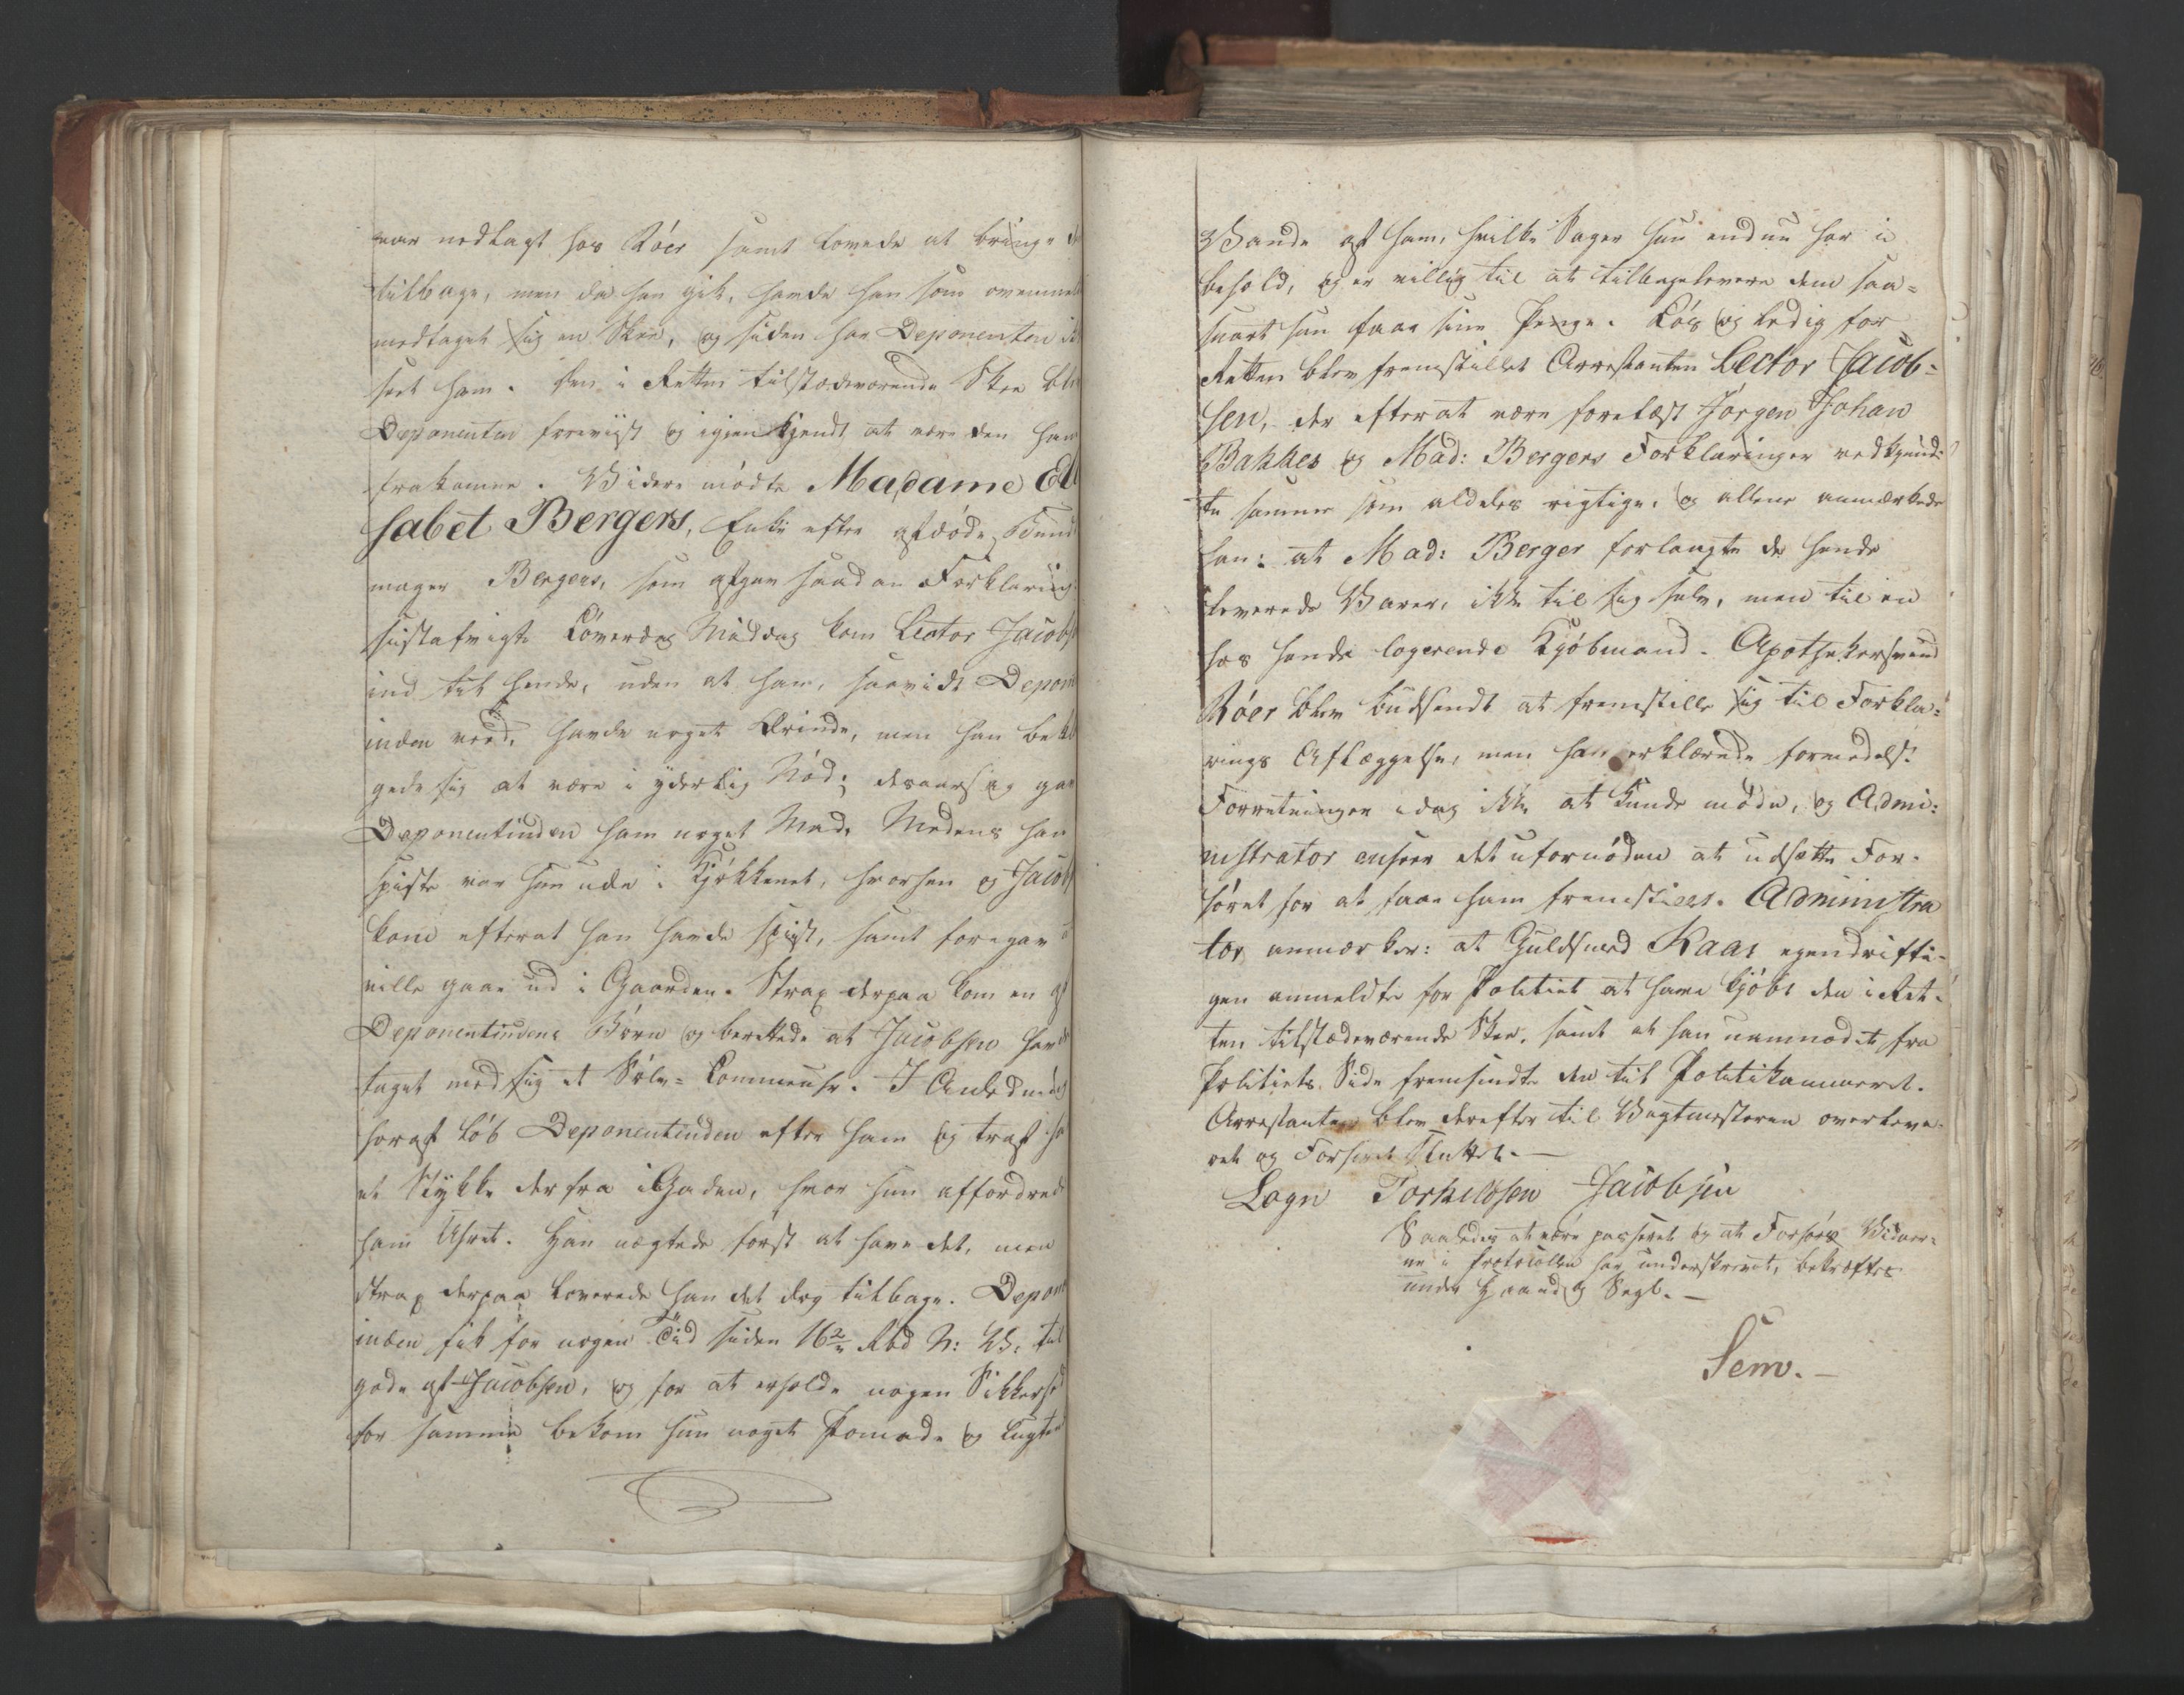 var nedlagt hos Röer samt lovede at bringe d
tilbage, men da han gik, havde han som ovenmeldt
medtaget sig en Skee, og siden har Deponenten ik
seet ham. Den i Retten tilstædeværende Skee blev
Deponenten foreviist og igjenkjendt at være den ham
frakomne. Videre mödte Madame Eli
sabet Bergers, Enke efter afdöde Bund
mager Bergers, som afgav saadan Forklaring:
sidstafvigte Löverdag Middag kom Lector Jacobs
ind til hende, uden at han, saavidt Depon
inden veed, havde noget Ærinde, men han bekla
gede sig at være i yderlig Nöd; desaarsag gav
Deponentinden ham noget Mad. Medens han
spiste var hun ude i Kjökkenet, hvorhen og Jacobs
kom efterat han havde spiist, samt foregav a
ville gaae ud i Gaarden. Strax derpaa kom en af
Deponentindens Börn og berettede at Jacobsen havde
taget med sig et Sölv-Lommeuhr. I Anledning
heraf löb Deponentinden efter ham og traf ha
et Stykke derfra i Gaden, hvor hun affordrede
ham Uhret. Han nægtede först at have det, men
strax derpaa leverede han det dog tilbage. Depon
inden fik for nogen Tiid siden 16 2/- Rbd N: V: til
gode af Jacobsen, og for at erholde nogen Sikkerhed
for samme bekom hun noget Pomade og Lugte
Vande af ham, hvilke Sager hun endnu har i
behold, og er villig til at tilbagelevere dem saa-
snart hun faaer sine Penge. Lös og ledig for
Retten blev fremstillet Arrestanten Lector Jacob-
sen, der efterat være forelæst Jörgen Johan
Bakkes og Mad: Bergers Forklaringer vedkjend-
te samme som aldeles rigtige, og allene anmærkede
han: at Mad: Berger forlangte de hende
leverede Varer, ikke til sig selv, men til en
hos hende logerende Kjöbmand. Apothekersvend
Röer blev budsendt at fremstille sig til Forkla-
rings Aflæggelse, men han erklærede formedelst
Forretninger idag ikke at kunde möde, og Admi-
nistrator anseer det ufornöden at udsætte For-
höret for at faae ham fremstillet. Administra
tor anmærker: at Guldsmed Kaas egendrifti-
gen anmeldte for Politiet at have kjöbt den i Ret-
ten tilstædeværende Skee, samt at han uanmodet fra
Politiets Side fremsendte den til Politikammeret.
Arrestanten blev derefter til Vagtmesteren overleve-
ret og Forhöret sluttet.
Logn Torkildsen Jacobsen
Saaledes at være passeret og at Forhörs Vidner-
ne i Protocollen har underskrevet, bekræftes
under Haand og Segl.
Sem.